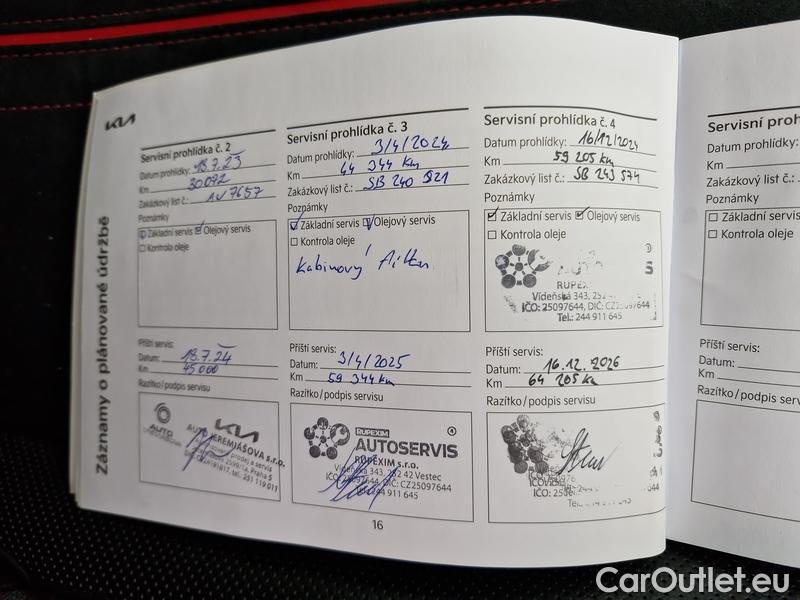 KIA
Záznamy o plánované údržbě
Servisní prohlídka č. 2
Datum prohlídky: 18.7.23
Km 30092
Zakázkový list č.: AV7657
Poznámky
Základní servis Olejový servis
Kontrola oleje
Příští servis:
Datum: 18.7.24
Km 45000
Razítko/podpis servisu
AUTO JEREMIÁŠOVA s.r.o.
tel. 251 119 011
Servisní prohlídka č. 3
Datum prohlídky: 3/4/2024
Km 44 344 km
Zakázkový list č.: SB 240 921
Poznámky
Základní servis Olejový servis
Kontrola oleje
Kabinový filter
Příští servis:
Datum: 3/4/2025
Km 59 344 km
Razítko/podpis servisu
RUPEXIM
AUTOSERVIS
RUPEXIM s.r.o.
Vídeňská 343, 252 42 Vestec
DIČ: CZ25097644
244 911 645
16
Servisní prohlídka č. 4
Datum prohlídky: 16/12/2024
Km 59 205 km
Zakázkový list č.: SB 243 574
Poznámky
Základní servis Olejový servis
Kontrola oleje
Vídeňská 343,
IČO: 25097644, DIČ:
Tel.: 244 911 645
Příští servis:
Datum: 16.12.2026
Km 64 205 km
Razítko/podpis servisu
Servisní proh
Datum prohlídky:
Km
Zakázkový list č.:
Poznámky
Základní servis
Kontrola oleje
Příští servis:
Datum:
Km
Razítko/podpis
CarOutlet.eu